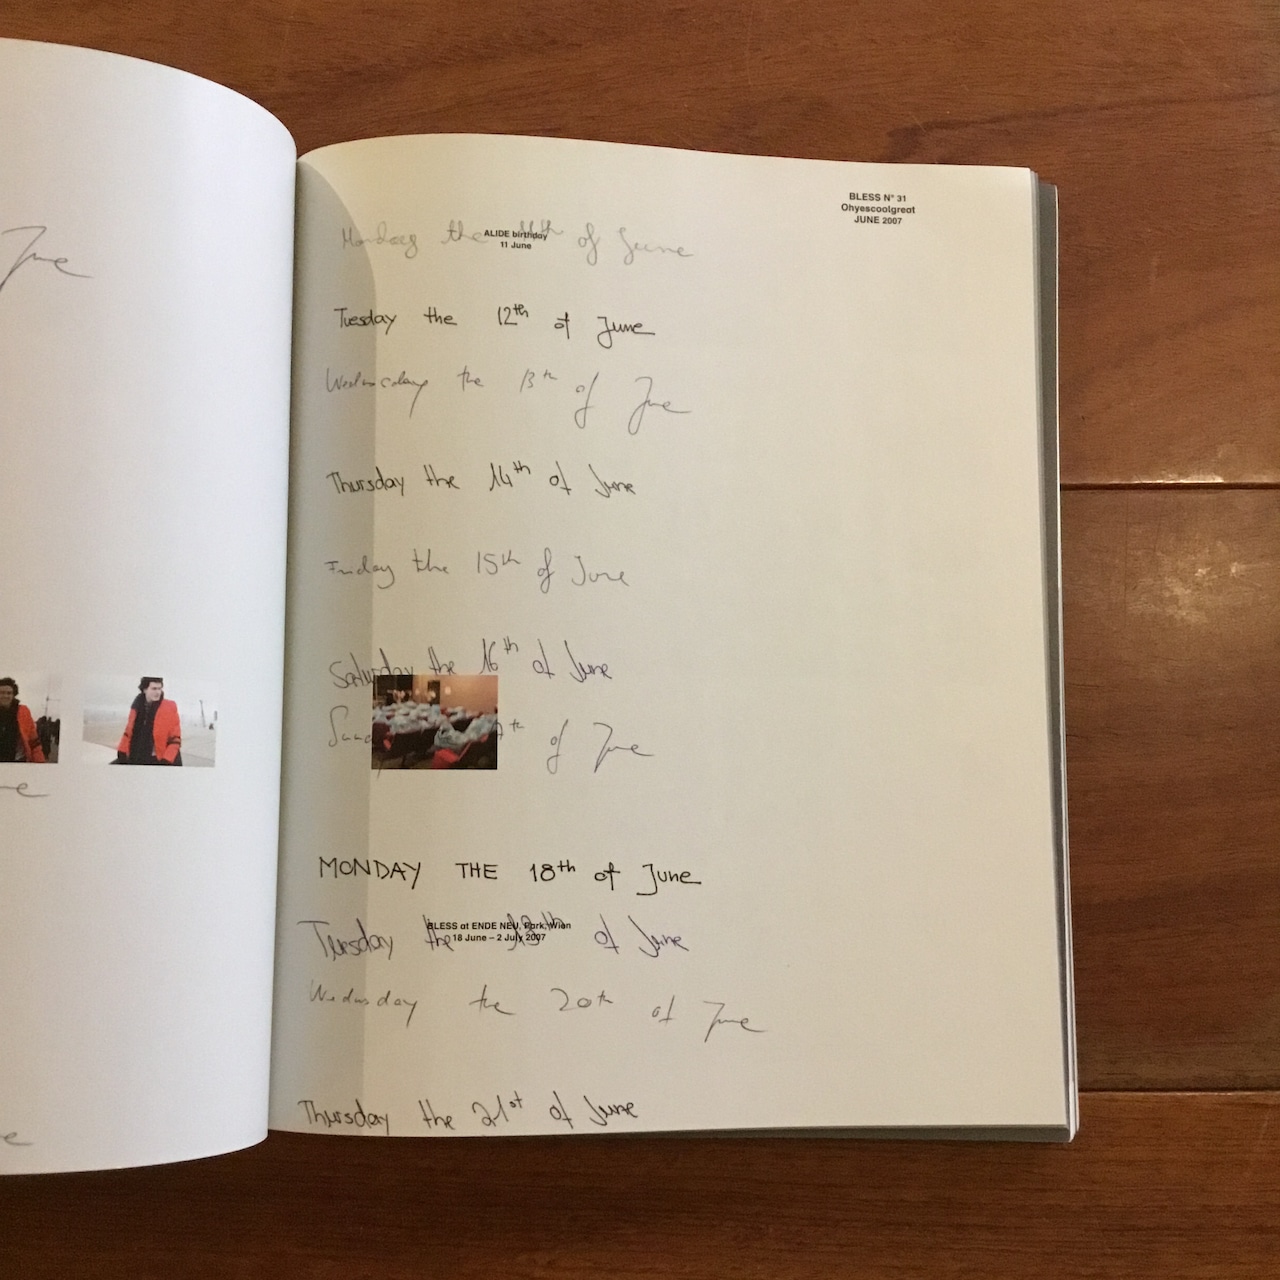 June
BLESS N° 31
Ohyescoolgreat
JUNE 2007
Monday the 11th of June
ALIDE birthday
11 June
Tuesday the 12th of June
Wednesday the 13th of June
Thursday the 14th of June
Friday the 15th of June
Saturday the 16th of June
of June
MONDAY THE 18th of June
Tuesday the 19th of June
BLESS at ENDE NEU, Park, Wien
18 June – 2 July 2007
Wednesday the 20th of June
Thursday the 21st of June